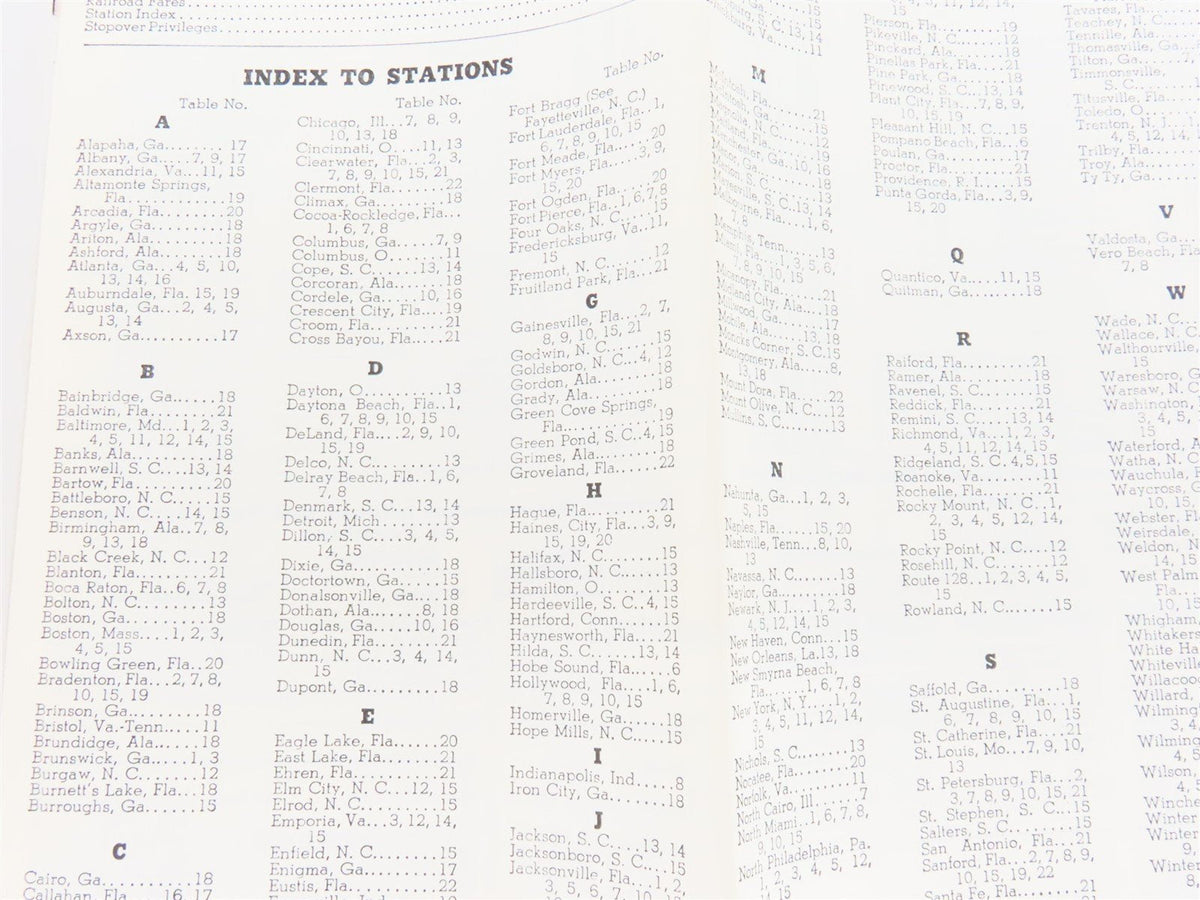 Railroad Fares
Station Index
Stopover Privileges
INDEX TO STATIONS
Table No.
A
Alapaha, Ga........ 17
Albany, Ga.....7, 9, 17
Alexandria, Va...11, 15
Altamonte Springs,
Fla...............19
Arcadia, Fla.........20
Argyle, Ga...........18
Ariton, Ala..........18
Ashford, Ala.........18
Atlanta, Ga...4, 5, 10,
13, 14, 16
Auburndale, Fla. 15, 19
Augusta, Ga...2, 4, 5,
13, 14
Axson, Ga..........17
B
Bainbridge, Ga......18
Baldwin, Fla.........21
Baltimore, Md...1, 2, 3,
4, 5, 11, 12, 14, 15
Banks, Ala...........18
Barnwell, S. C....13, 14
Bartow, Fla..........20
Battleboro, N. C.....15
Benson, N. C....14, 15
Birmingham, Ala..7, 8,
9, 13, 18
Black Creek, N. C...12
Blanton, Fla.........21
Boca Raton, Fla..6, 7, 8
Bolton, N. C.........13
Boston, Ga..........18
Boston, Mass....1, 2, 3,
4, 5, 15
Bowling Green, Fla..20
Bradenton, Fla...2, 7, 8,
10, 15, 19
Brinson, Ga..........18
Bristol, Va.-Tenn....11
Brundidge, Ala......18
Brunswick, Ga.....1, 3
Burgaw, N. C.......12
Burnett's Lake, Fla...18
Burroughs, Ga.......15
C
Cairo, Ga............18
Callahan, Fla....16, 17
Table No.
Chicago, Ill...7, 8, 9,
10, 13, 18
Cincinnati, O....11, 13
Clearwater, Fla...2, 3,
7, 8, 9, 10, 15, 21
Clermont, Fla........22
Climax, Ga..........18
Cocoa-Rockledge, Fla...
1, 6, 7, 8
Columbus, Ga.....7, 9
Columbus, O........11
Cope, S. C......13, 14
Corcoran, Ala.......18
Cordele, Ga.....10, 16
Crescent City, Fla....19
Croom, Fla..........21
Cross Bayou, Fla.....21
D
Dayton, O...........13
Daytona Beach, Fla..1,
6, 7, 8, 9, 10, 15
DeLand, Fla...2, 9, 10,
15, 19
Delco, N. C..........13
Delray Beach, Fla..1, 6,
7, 8
Denmark, S. C...13, 14
Detroit, Mich........13
Dillon, S. C....3, 4, 5,
14, 15
Dixie, Ga............18
Doctortown, Ga......15
Donalsonville, Ga....18
Dothan, Ala.......8, 18
Douglas, Ga.....10, 16
Dunedin, Fla........21
Dunn, N. C...3, 4, 14,
15
Dupont, Ga..........18
E
Eagle Lake, Fla......20
East Lake, Fla.......21
Ehren, Fla...........21
Elm City, N. C...12, 15
Elrod, N. C..........15
Emporia, Va...3, 12, 14,
15
Enfield, N. C........15
Enigma, Ga..........17
Eustis, Fla...........22
Table No.
Fort Bragg (See
Fayetteville, N. C.)
Fort Lauderdale, Fla...1,
6, 7, 8, 9, 10, 15
Fort Meade, Fla.....20
Fort Myers, Fla....3, 9,
15, 20
Fort Ogden, Fla.....20
Fort Pierce, Fla..1, 6, 7, 8
Four Oaks, N. C.....15
Fredericksburg, Va..11,
15
Fremont, N. C.......12
Fruitland Park, Fla...21
G
Gainesville, Fla...2, 7,
8, 9, 10, 15, 21
Godwin, N. C.......15
Goldsboro, N. C...4, 12
Gordon, Ala.........18
Grady, Ala..........18
Green Cove Springs,
Fla................19
Green Pond, S. C..4, 15
Grimes, Ala.........18
Groveland, Fla......22
H
Hague, Fla..........21
Haines, City, Fla...3, 9,
15, 19, 20
Halifax, N. C.......15
Hallsboro, N. C.....13
Hamilton, O.........13
Hardeeville, S. C..4, 15
Hartford, Conn......15
Haynesworth, Fla....21
Hilda, S. C......13, 14
Hobe Sound, Fla.....6
Hollywood, Fla....1, 6,
7, 8, 9, 10, 15
Homerville, Ga......18
Hope Mills, N. C....15
I
Indianapolis, Ind.....8
Iron City, Ga........18
J
Jackson, S. C....13, 14
Jacksonboro, S. C....15
Jacksonville, Fla..1, 2,
3, 5, 6, 7, 10, 13
M
Melbourne, Fla...1, 6,
7, 8
Memphis, Tenn....13
Miami, Fla...1, 3, 5, 6,
7, 8, 9, 10, 15
Micanopy, Fla.......21
Midland City, Ala....18
Millwood, Ga........17
Mobile, Ala......13, 18
Moncks Corner, S. C.15
Montgomery, Ala....8,
13, 18
Mount Dora, Fla.....22
Mount Olive, N. C...12
Mullins, S. C........13
N
Nahunta, Ga...1, 2, 3,
5, 15
Naples, Fla.....15, 20
Nashville, Tenn...8, 10,
13
Navassa, N. C.......13
Naylor, Ga..........18
Newark, N. J....1, 2, 3,
4, 5, 12, 14, 15
New Haven, Conn...15
New Orleans, La.13, 18
New Smyrna Beach,
Fla........1, 6, 7, 8
New York, N. Y....1, 2,
3, 4, 5, 11, 12, 14,
15
Nichols, S. C........13
Nocatee, Fla........20
Norfolk, Va.........11
North Cairo, Ill......7
North Miami..1, 6, 7, 8,
9, 10, 15
North Philadelphia, Pa.
1, 2, 3, 4, 5, 12,
14, 15
Pierson, Fla.........19
Pikeville, N. C.......12
Pinckard, Ala........18
Pinellas Park, Fla....21
Pine Park, Ga.......18
Pinewood, S. C...13, 14
Plant City, Fla...7, 8, 9,
10, 15, 19
Pleasant Hill, N. C...15
Pompano Beach, Fla..6
Poulan, Ga..........17
Proctor, Fla.........21
Providence, R. I.....15
Punta Gorda, Fla...3, 9,
15, 20
Q
Quantico, Va....11, 15
Quitman, Ga........18
R
Raiford, Fla.........21
Ramer, Ala..........18
Ravenel, S. C........15
Reddick, Fla........21
Remini, S. C.....13, 14
Richmond, Va...1, 2, 3,
4, 5, 11, 12, 14, 15
Ridgeland, S. C. 4, 5, 15
Roanoke, Va........11
Rochelle, Fla........21
Rocky Mount, N. C..1,
2, 3, 4, 5, 12, 14,
15
Rocky Point, N. C....12
Rosehill, N. C.......12
Route 128..1, 2, 3, 4, 5,
15
Rowland, N. C......15
S
Saffold, Ga.........18
St. Augustine, Fla...1,
6, 7, 8, 9, 10, 15
St. Catherine, Fla....21
St. Louis, Mo...7, 9, 10,
13
St. Petersburg, Fla...2,
3, 7, 8, 9, 10, 15, 21
St. Stephen, S. C....15
Salters, S. C........15
San Antonio, Fla....21
Sanford, Fla...2, 7, 8, 9,
10, 15, 19, 22
Santa Fe, Fla........21
Tavares, Fla.
Teachey, N. C.
Tennille, Ala.
Thomasville, Ga.
Tifton, Ga.....7,
Timmonsville,
S. C.
Titusville, Fla.
Toledo, O.
Trenton, N. J....1
4, 5, 12, 14,
Trilby, Fla.
Troy, Ala.
Ty Ty, Ga.
V
Valdosta, Ga.
Vero Beach, Fla
7, 8
W
Wade, N. C.
Wallace, N. C.
Walthourville,
15
Waresboro, G
Warsaw, N. C
Washington,
3, 4, 5,
15
Waterford, A
Watha, N. C
Wauchula,
Waycross, G
10, 15,
Webster, Fl
Weirsdale,
Weldon, N
14, 15
West Palm
Fla.
10, 15
Whigham,
Whitakers
White Ha
Whiteville
Willacoo
Willard,
Wilming
3, 4,
Wilming
4, 5
Wilson,
4, 5
Winche
Winter
Winter
9,
Winter
8,